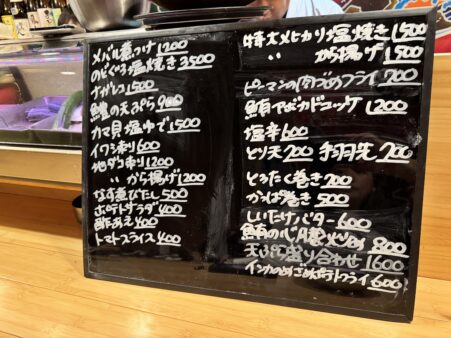 メバル煮つけ 1200
のどぐろ塩焼き 3500
ナガレコ 1500
鱧の天ぷら 900
カマ貝塩ゆで 1500
イワシ刺り 600
地ダコ刺り 1200
〃 から揚げ 1200
なす煮びたし 500
ポテトサラダ 400
酢あえ 400
トマトスライス 400
特大メヒカリ塩焼き 1500
〃 から揚げ 1500
ピーマンの肉づめフライ 700
鮪アボカドユッケ 1200
塩辛 600
とり天 200 手羽先 200
とろたく巻き 200
かっぱ巻き 500
しいたけバター 600
鮪の心臓炒め 800
天ぷら盛り合わせ 1600
インカのめざめポテトフライ 600